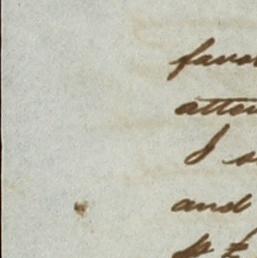 favo
atten
I s
and